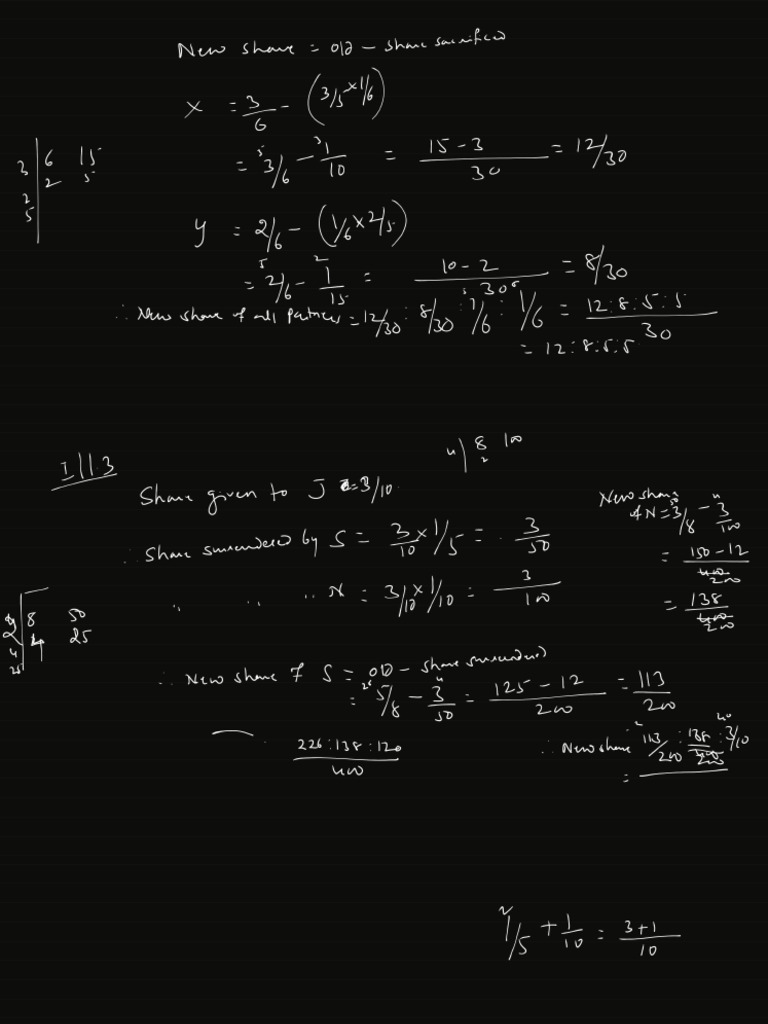 New share = old - share sacrificed
X = 3/6 - (3/5 x 1/6)
3 | 6 15
2 | 2 5
5 |
= 3/6 - 1/10 = 15 - 3 / 30 = 12/30
y = 2/6 - (1/6 x 2/5)
= 2/6 - 1/15 = 10 - 2 / 30 = 8/30
∴ New share of all partners = 12/30 : 8/30 : 1/6 : 1/6 = 12 : 8 : 5 : 5 / 30
= 12 : 8 : 5 : 5
Ill 3
4 | 8 100
2
Share given to J = 3/10.
∴ Share surrendered by S = 3/10 x 1/5 = 3/50
" " " N = 3/10 x 1/10 = 3/100
New share of N = 3/8 - 3/100
= 150 - 12 / 200
= 138 / 200
2 | 8 50
4 25
∴ New share of S = old - share surrendered
= 5/8 - 3/50 = 125 - 12 / 200 = 113/200
226 : 138 : 120 / 400
∴ New share 113/200 : 138/200 : 3/10
=
1/5 + 1/10 = 3+1 / 10